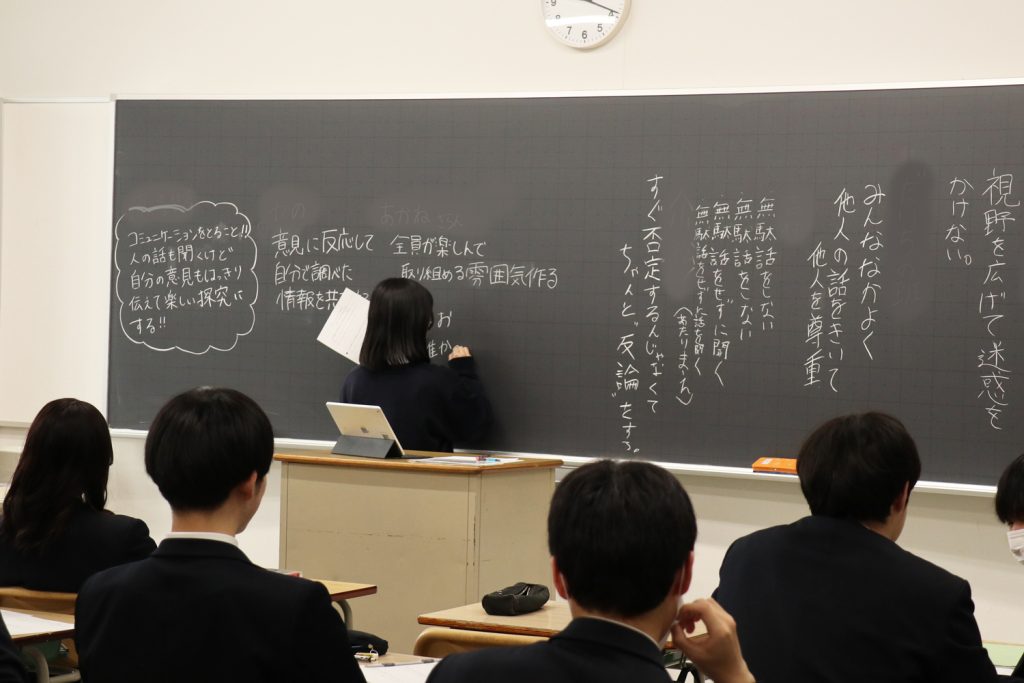 コミュニケーションをとること!!
人の話も聞くけど
自分の意見もはっきり
伝えて楽しい探究に
する!!
意見に反応して
自分で調べた
情報を共
全員が楽しんで
取り組める雰囲気作る
お
誰か
視野を広げて迷惑を
かけない。
みんななかよく
他人の話をきいて
他人を尊重
無駄話をしない
無駄話をしない
無駄話をせずに聞く
無駄話をせず 話を聞く
すぐ否定するんじゃなくて
ちゃんと"反論"をする。